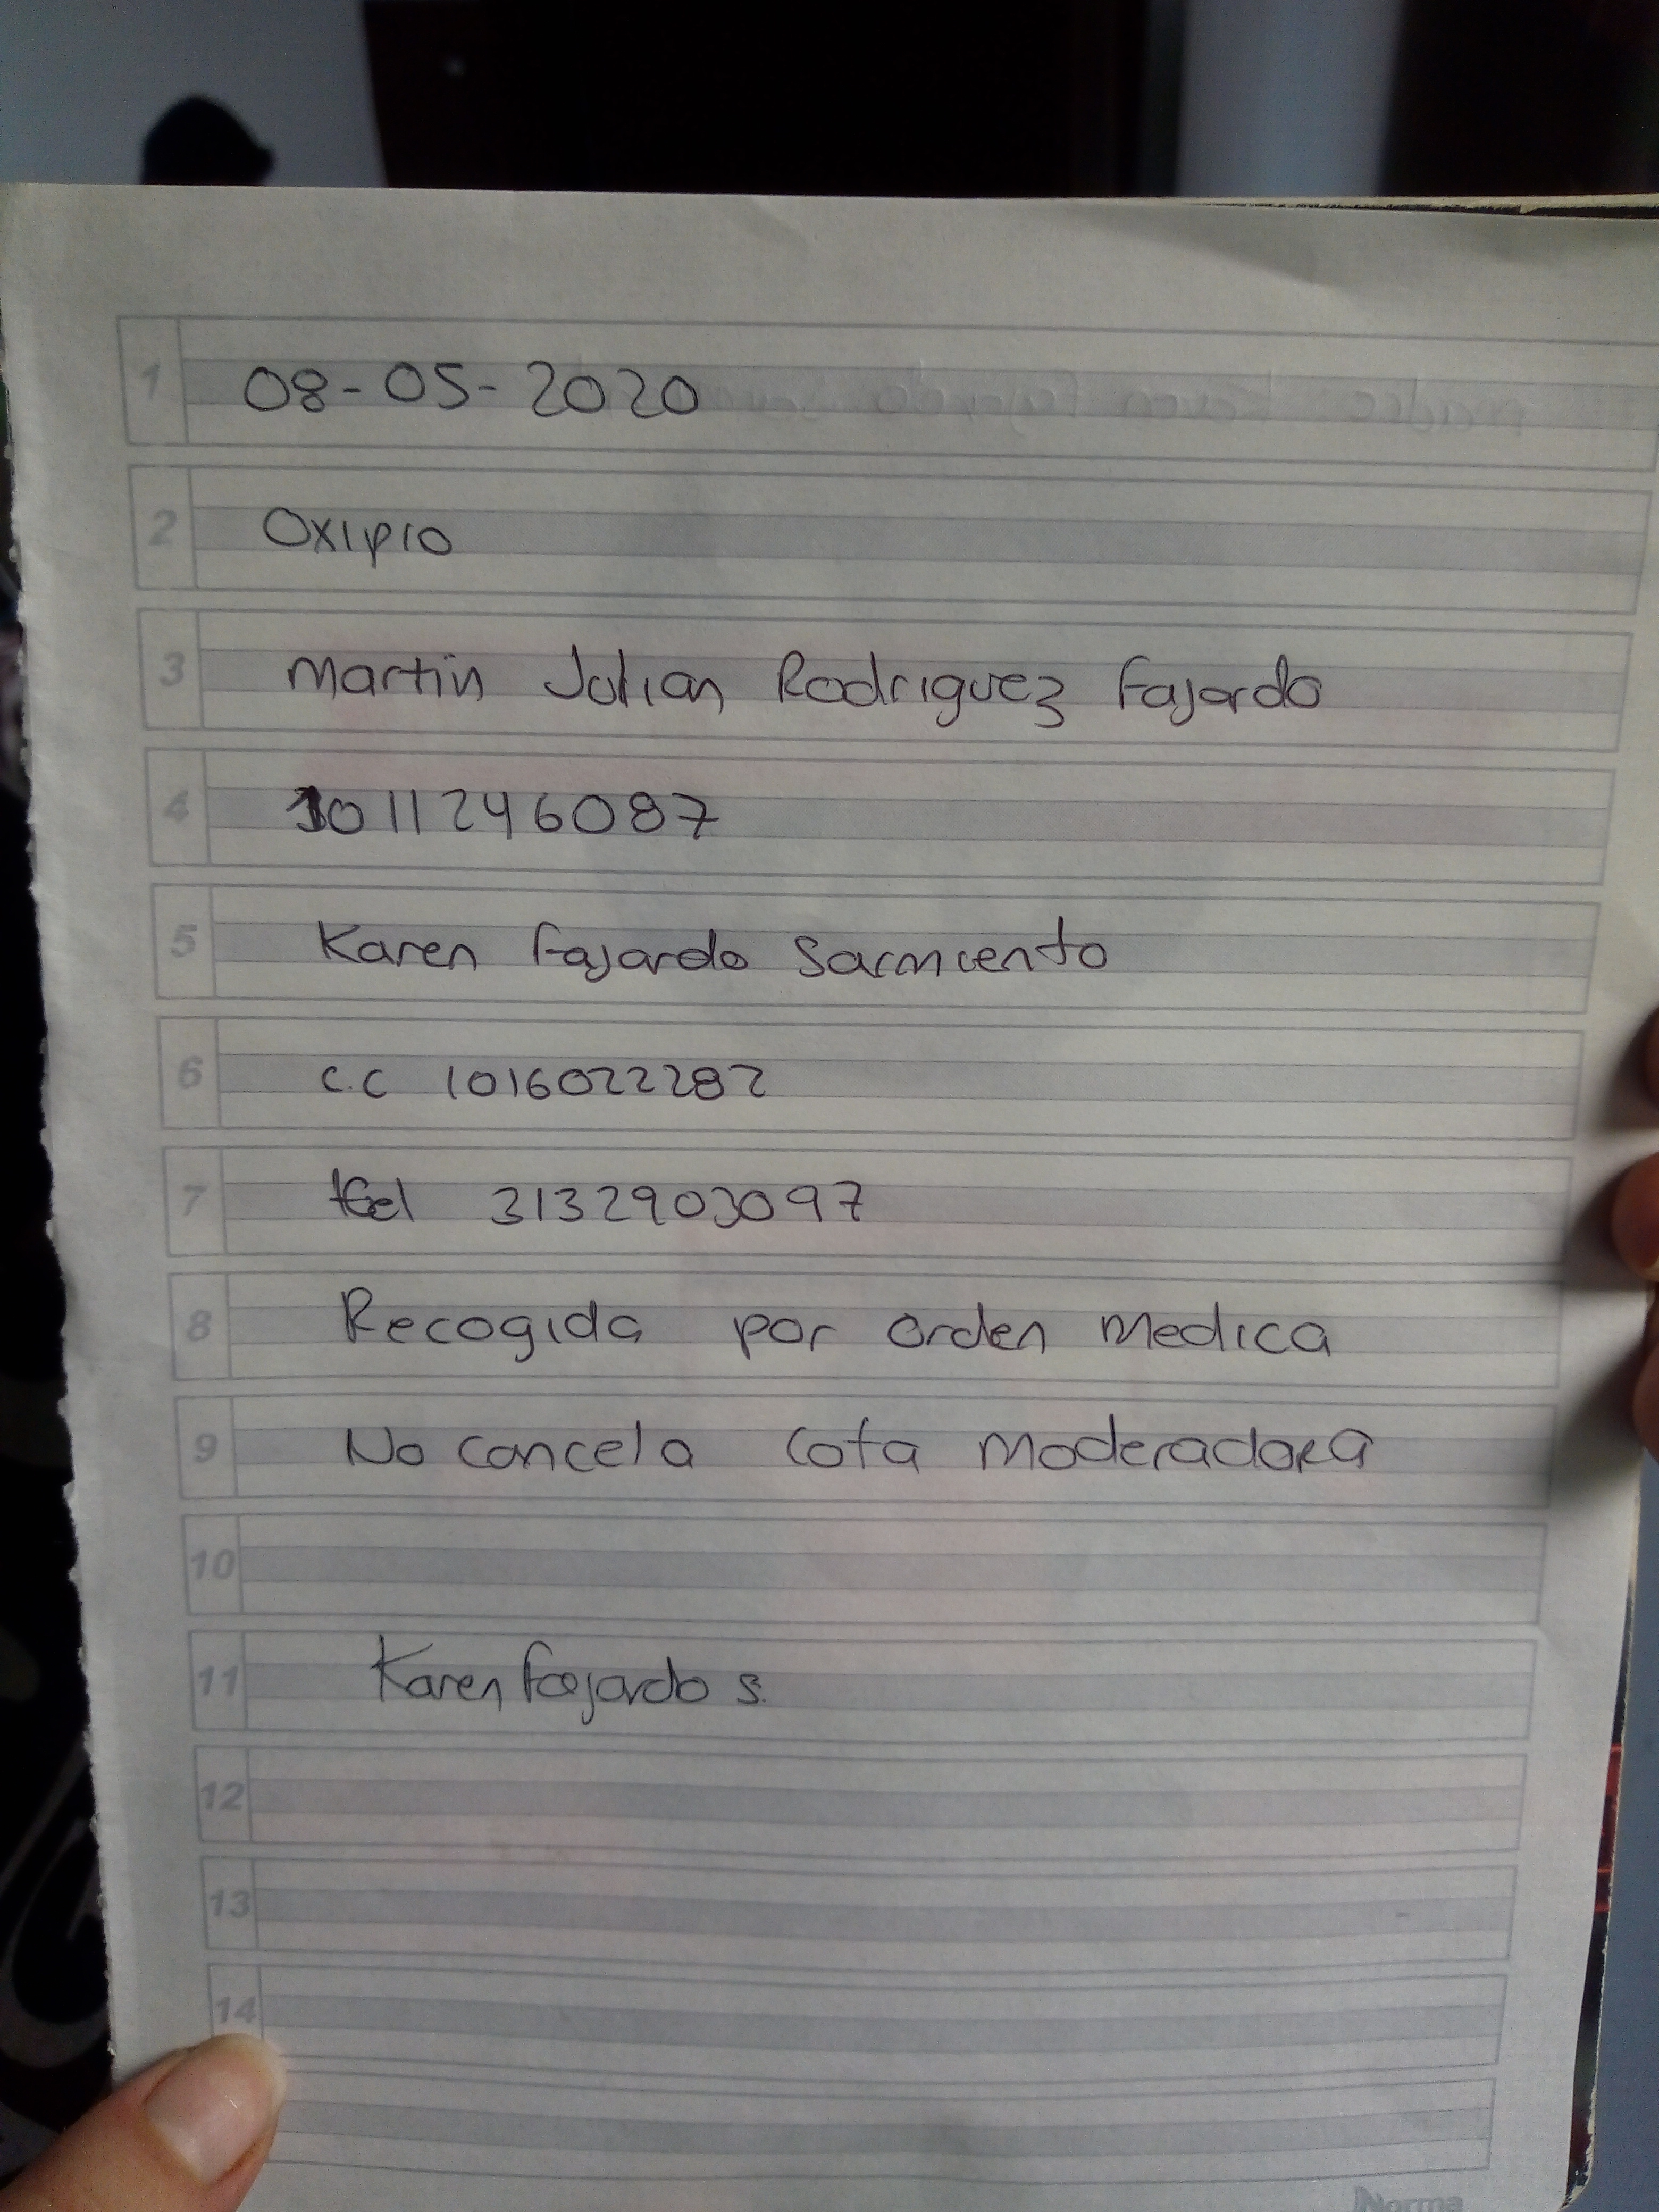 1 08-05-2020
2 Oxipio
3 Martin Julian Rodriguez Fajardo
4 1011246087
5 Karen Fajardo Sarmiento
6 C.C 1016022282
7 tel 3132903097
8 Recogida por orden Medica
9 No cancela Cota Moderadora
10
11 Karen Fajardo S.
12
13
14
Norma